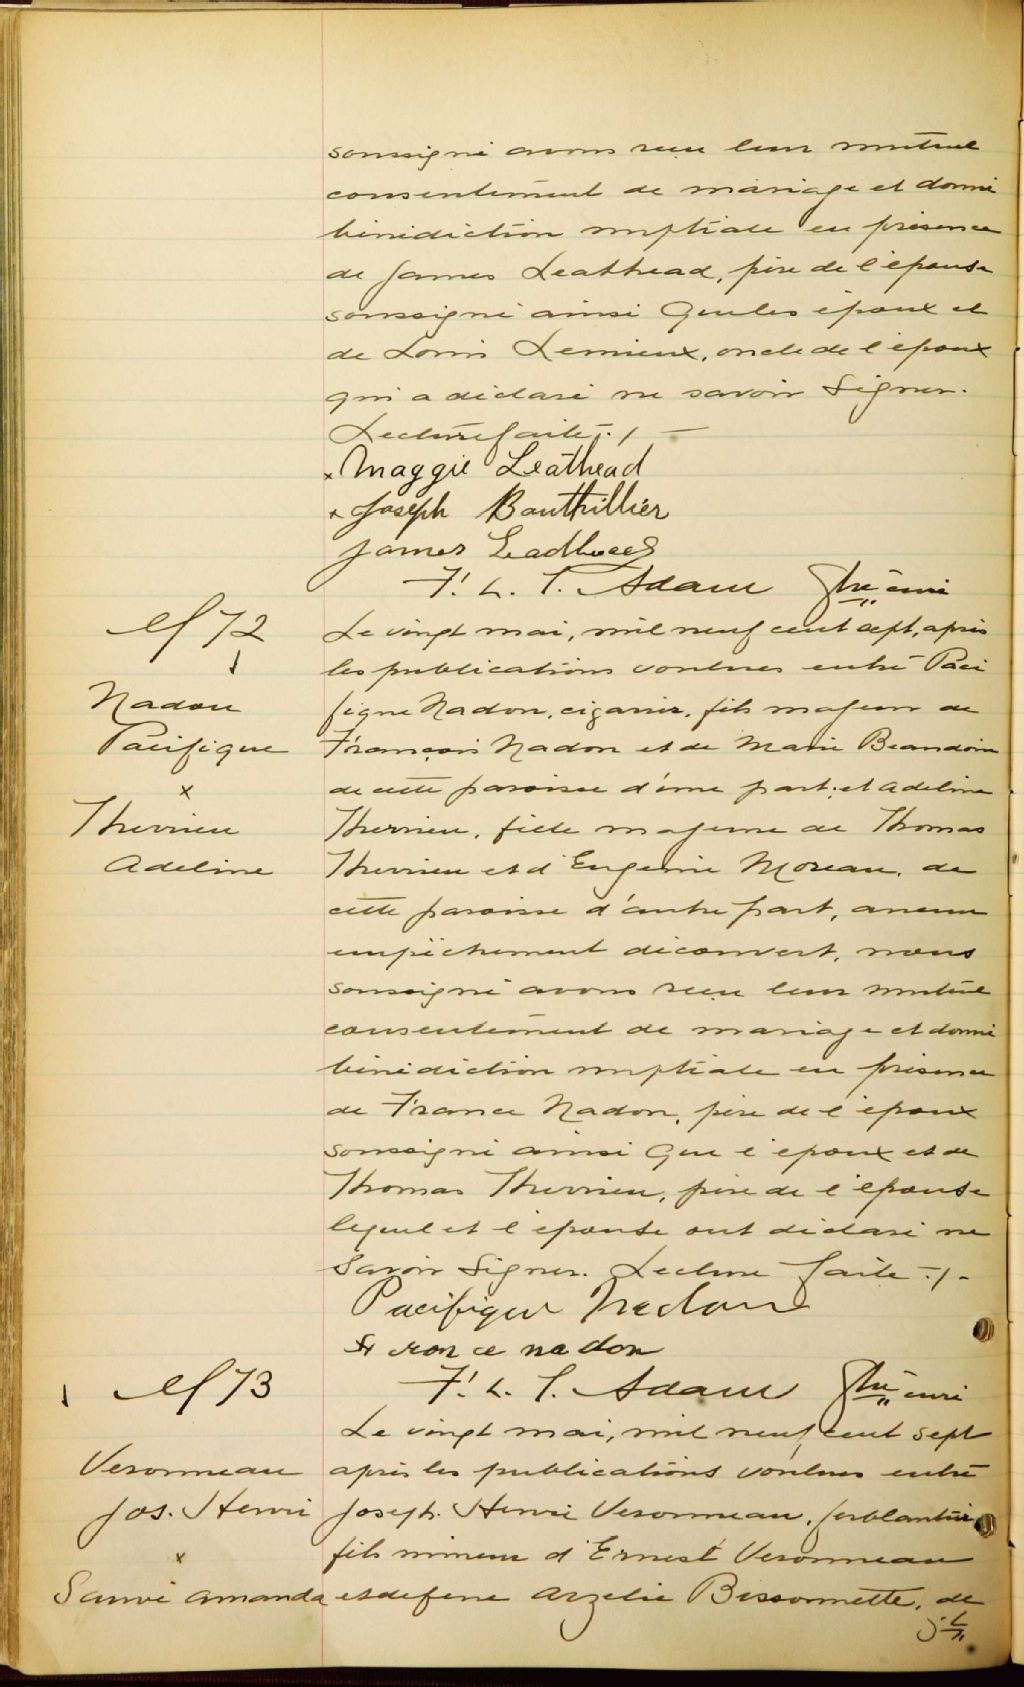 soussigné avons reçu leur mutuel
consentement de mariage et donné
bénédiction nuptiale en présence
de James Leathead, père de l'épouse
soussigné ainsi que les époux et
de Louis Lemieux, oncle de l'époux
qui a déclaré ne savoir signer.
Lecture faite ./. —
x Maggie Leathead
x Joseph Bouthillier
James
F. L. T. Adam Ptre curé
M 72
Le vingt mai, mil neuf cent sept, après
les publications voulues entre Paci
Nadon
fique Nadon, cigarier, fils majeur de
Pacifique
François Nadon et de Marie Beaudoin
x
de cette paroisse d'une part; et Adeline
Therrien
Therrien, fille majeure de Thomas
Adeline
Therrien et d'Eugénie Moreau, de
cette paroisse d'autre part, aucun
empêchement découvert, nous
soussigné avons reçu leur mutuel
consentement de mariage et donné
bénédiction nuptiale en présence
de France Nadon, père de l'époux
soussigné ainsi que l'époux et de
Thomas Therrien, père de l'épouse
lequel et l'épouse ont déclaré ne
savoir signer. Lecture faite ./.
Pacifique Nadon
france nadon
M 73
F. L. T. Adam Ptre curé
Le vingt mai, mil neuf cent sept
Veronneau
après les publications voulues entre
Jos. Henri
Joseph Henri Veronneau, ferblantier
x
fils mineur d'Ernest Veronneau
Sauvé Amanda
et de feue Arzelie Bissonnette, de